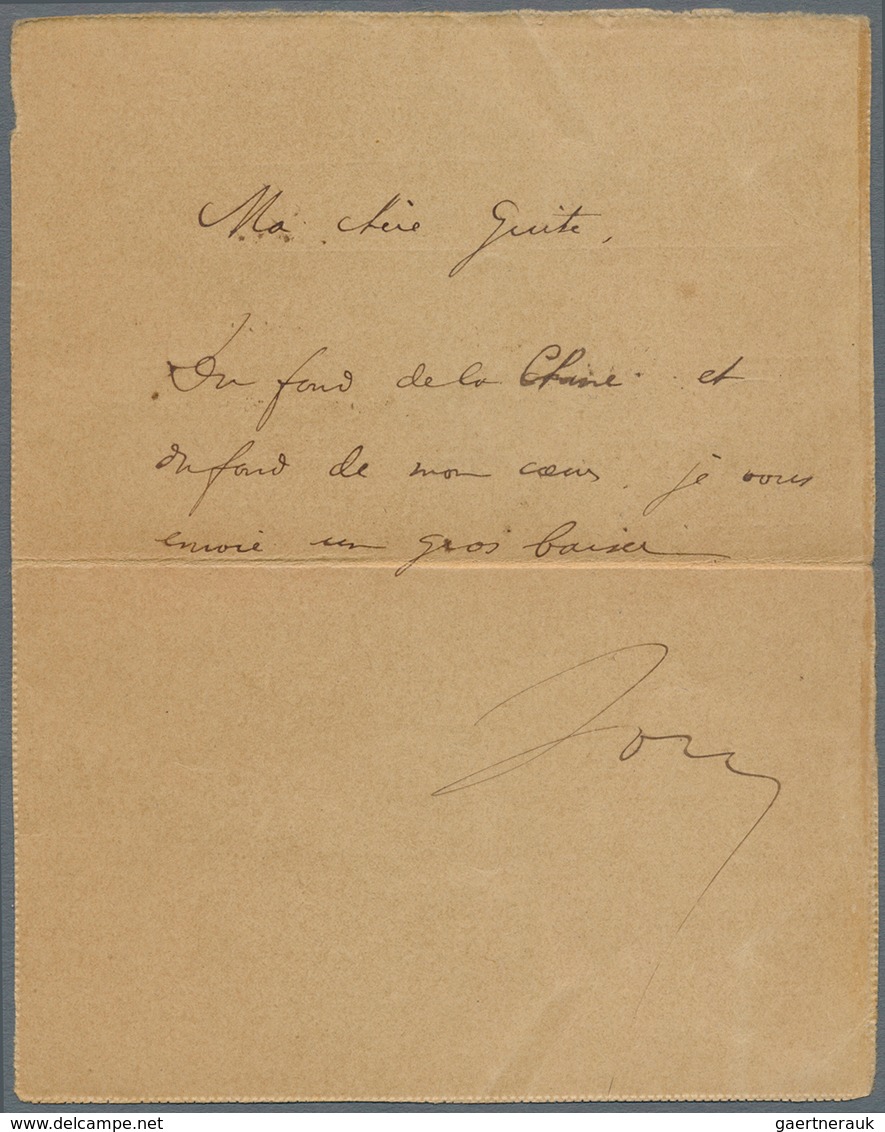 Ma chère Guite,
Du fond de la Chine et
du fond de mon cœur, je vous
envoie un gros baiser
the-stamp.com
gaertnerauk